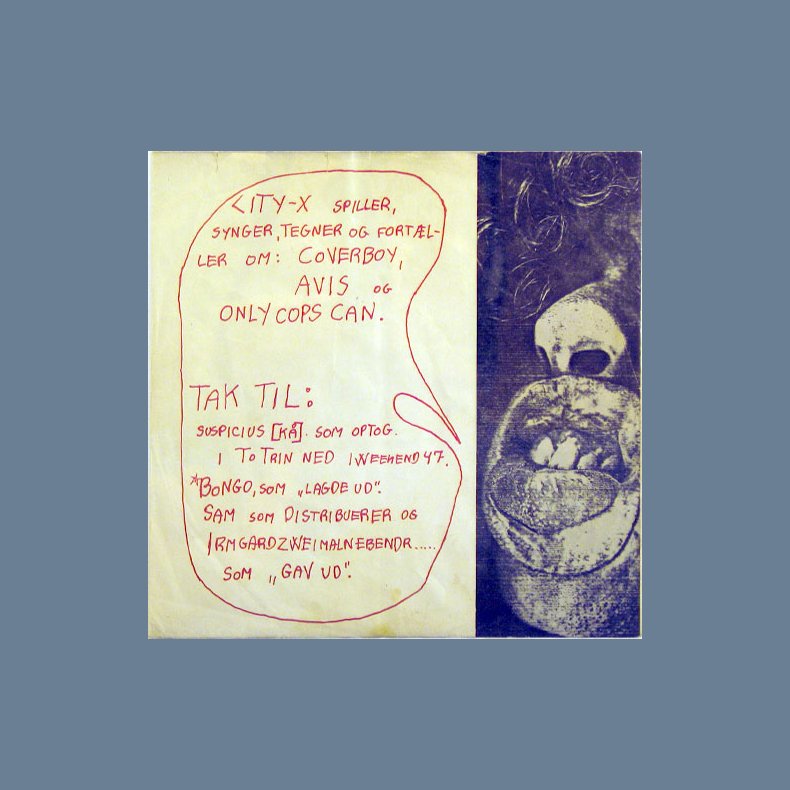 CITY-X SPILLER,
SYNGER, TEGNER OG FORTÆL-
LER OM: COVERBOY,
AVIS OG
ONLY COPS CAN.
TAK TIL:
SUSPICIUS [KÅ]. SOM OPTOG.
I TO TRIN NED I WEEKEND 47.
*BONGO, SOM „LAGDE UD".
SAM SOM DISTRIBUERER OG
IRMGARDZWEIMALNEBENDR.....
SOM „GAV UD".